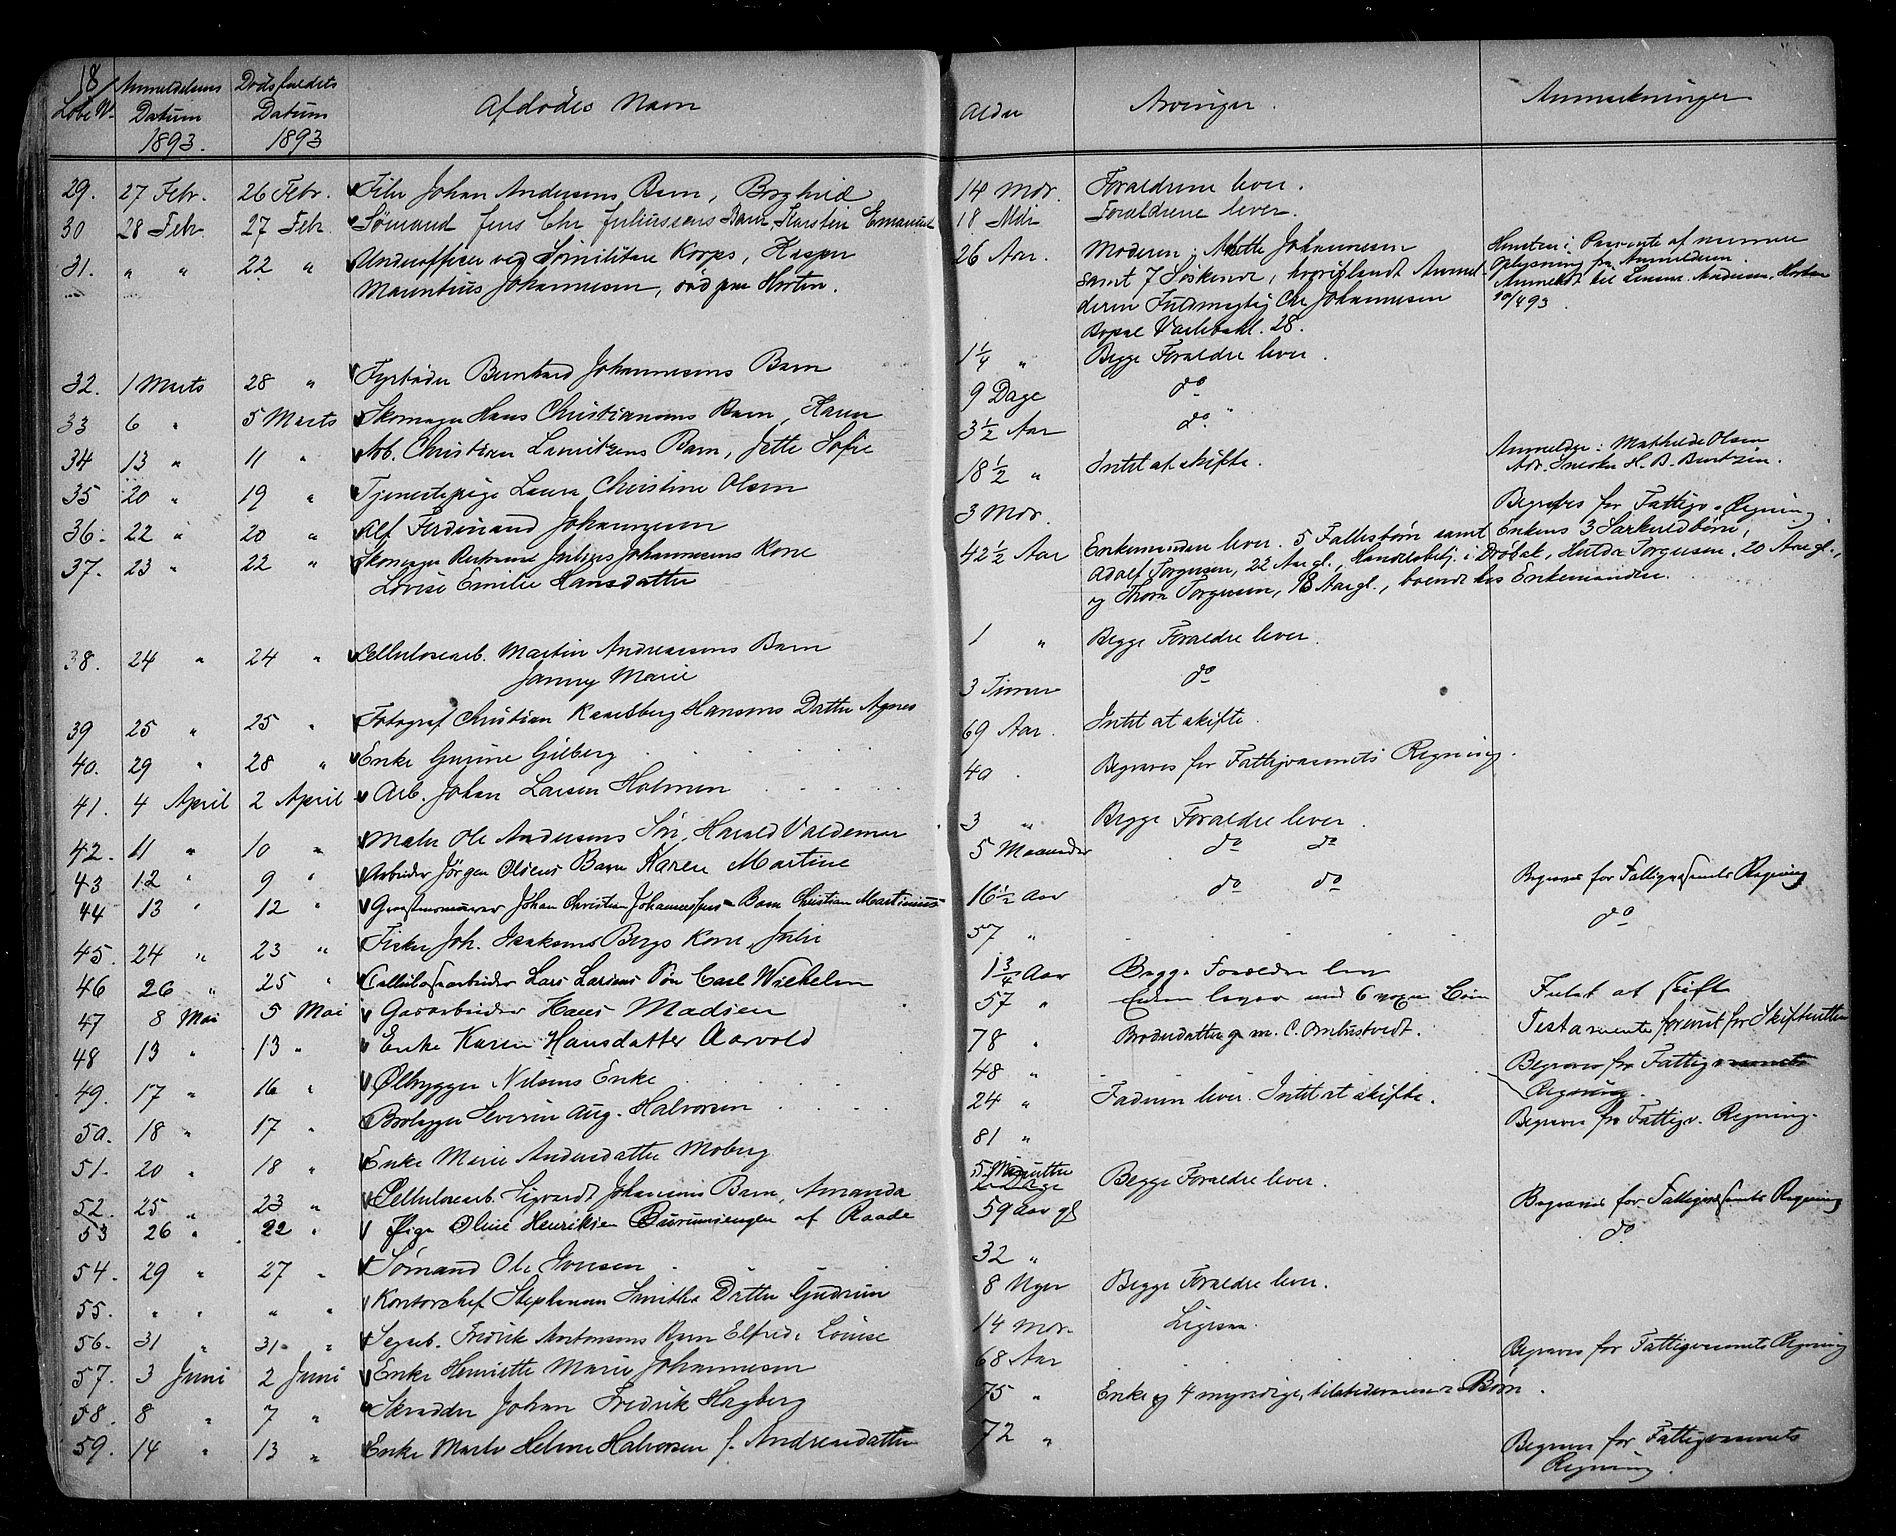 18
Löbe N. Anmeldelsens Datum 1893. Dödsfaldets Datum 1893 Afdödes Navn Alder Arvinger. Anmærkninger
29. 27 Febr. 26 Febr. Johan Andersens Barn, Borghild 14 Mdr. Forældrene lever.
30 28 Febr. 27 Febr. Sömand Jens Chr Juliussens Barn Karsten Emanuel 18 Mdr Forældrene lever.
31. " " 22 " Underofficer ved Sömilitære Korps, Kasper 26 Aar. Moderen, Johannesen
Mauritius Johannesen, död paa Horten. samt 7 Söskende, hvoriblandt Anmel-
deren Fuldmægtig Chr Johannesen
Bopæl 28.
Anmeldt til Lensm. Andersen, Horten
10/4 93.
32. 1 Marts 28 " Fyrböder Bernhard Johannesens Barn 1 1/4 " Begge Forældre lever.
33 6 " 5 Marts Skomager Hans Christiansens Barn, Karen 9 Dage do
34 13 " 11 " Arb. Christian Lauritzens Barn, Jette Sofie 3 1/2 Aar do.
35 20 " 19 " Tjenestepige Laura Christine Olsen 18 1/2 " Intet at skifte. Anmelder: Mathilde Olsen
Adr. Snedker H. B. Berntzen.
36. 22 " 20 " Alf Ferdinand Johannesen 3 Mdr. Begraves for Fattigv. Regning
37. 23 " 22 " Skomager Julius Johannesens Kone 42 1/2 Aar Enkemanden lever. 5 Fællesbörn samt Enkens 3 Særkuldbörn,
Lovise Emilie Hansdatter Adolf Torgersen, 22 Aar gl., Handelsbetj. i Dröbak, Hulda Torgersen, 20 Aar gl.,
og Thora Torgersen, 18 Aar gl., boende hos Enkemanden.
38. 24 " 24 " Cellulosearb. Martin Andreasens Barn 1 " Begge Forældre lever.
Janny Marie
39 25 " 25 " Fotograf Christian Hansens Datter Agnes 3 Timer do
40. 29 " 28 " Enke Gurine Gilberg 69 Aar. Intet at skifte.
41. 4 April 2 April Arb. Johan Larsen Holmen 40 Begraves for Fattigvæsenets Regning.
42. 11 " 10 " Maler Ole Andersens Sön, Harald Valdemar 3 " Begge Forældre lever.
43 12 " 9 " Arbeider Jörgen Olsens Barn Karen Martine 5 Maaneder do do
44 13 " 12 " Johan Christian Johannessens Barn Christian Martinius 16 1/2 Aar do do Begraves for Fattigvæsenets Regning
45. 24 " 23 " Fisker Joh. Isaksens Bergs Kone, Julie 57 " do
46 26 " 25 " Cellulosearbeider Lars Larsens Sön Carl Wilhelm 1 3/4 Aar Begge Forældre lever
47 8 Mai 5 Mai Gasarbeider Hans Madsen 57 " Enken lever med 6 voxne Börn Intet at skifte
48 13 " 13 " Enke Karen Hansdatter Aarvold 78 " Broderdatter g. m. C. Ombustvedt. Testamente forevist for Skifteretten
49. 17 " 16 " Ölbrygger Nilsens Enke 48 " Begraves for Fattigvæsenets
Regning.
50. 18 " 17 " Severin Aug. Halvorsen 24 " Faderen lever. Intet at skifte. Begraves for Fattigv. Regning.
51. 20 " 18 " Enke Marie Andersdatter Moberg 81 "
52. 25 " 23 " Cellulosearb. Sigvardt Johansens Barn, Amanda 5 Minutter Begge Forældre lever.
53 26 " 22 " Pige Oline Henriksen af Raade 59 Aar gl Begraves for Fattigvæsenets Regning
54. 29 " 27 " Sömand Ole Iversen 32 " do
55. " " " " Kontorchef Stephensen Smiths Datter Gudrun 8 Uger Begge Forældre lever.
56. 31 " 31 " Sagarb. Fredrik Antonsens Barn Elfrida Louise 14 Mdr. Ligesaa.
57. 3 Juni 2 Juni Enke Henriette Marie Johannesen 68 Aar Begraves for Fattigvæsenets Regning
58. 8 " 7 " Skrædder Johan Fredrik Hagberg 75 " Enke og 4 myndige, tilstedeværende Börn.
59. 14 " 13 " Enke Marte Helene Halvorsen f. Andreasdatter 72 " Begraves for Fattigvæsenets
Regning.